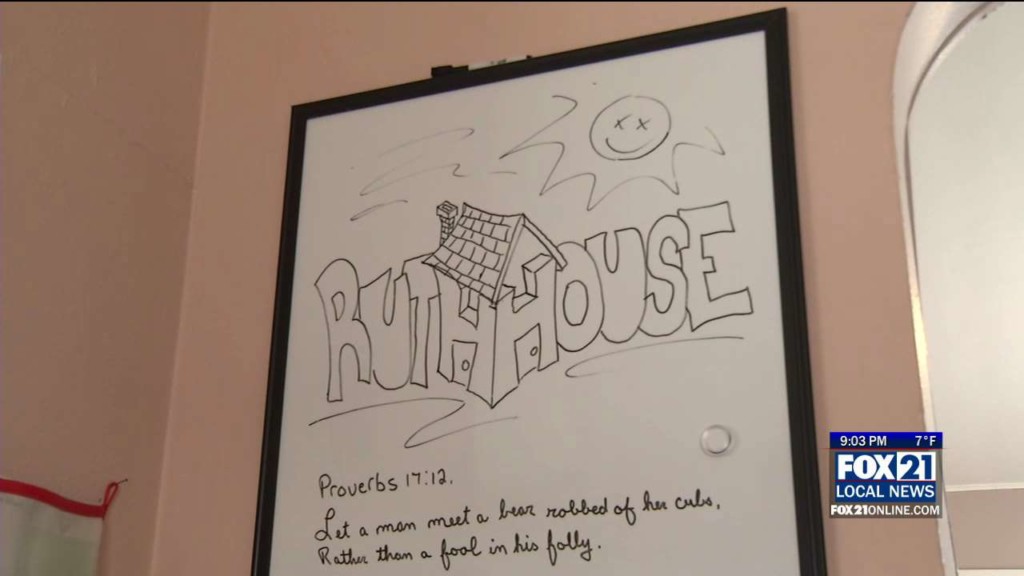 RUTH HOUSE
Proverbs 17:12.
Let a man meet a bear robbed of her cubs,
Rather than a fool in his folly.
9:03 PM 7°F
FOX 21
LOCAL NEWS
FOX21ONLINE.COM